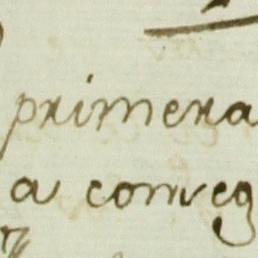 primera
a conveg